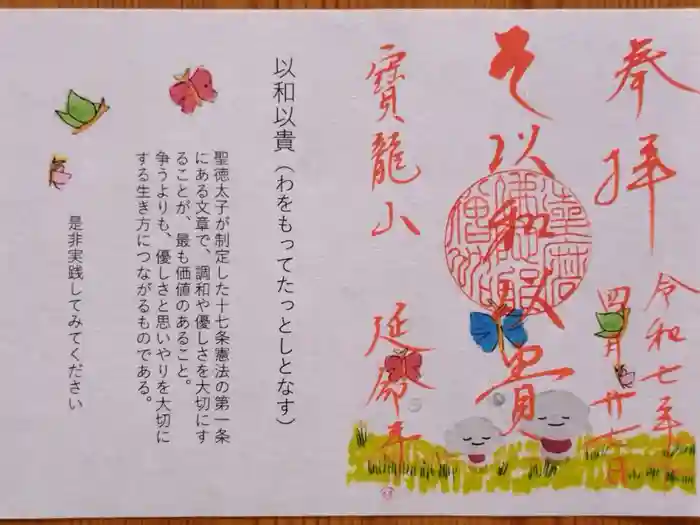 奉拝
令和七年
四月廿七日
以和以貴
寳龍山
延命寺
以和以貴（わをもってたっとしとなす）
聖徳太子が制定した十七条憲法の第一条
にある文章で、調和や優しさを大切にす
ることが、最も価値のあること。
争うよりも、優しさと思いやりを大切に
する生き方につながるものである。
是非実践してみてください